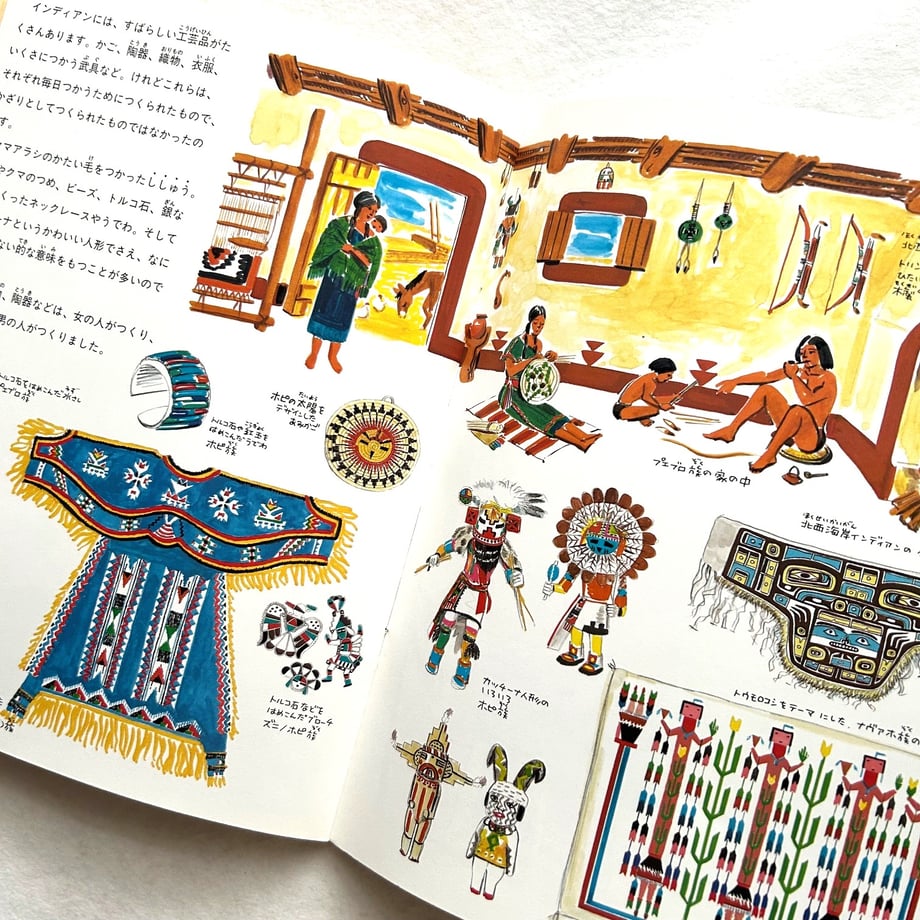 インディアンには、すばらしい工芸品がた
くさんあります。かご、陶器、織物、衣服、
いくさにつかう武具など。けれどこれらは、
それぞれ毎日つかうためにつくられたもので、
かざりとしてつくられたものではなかったの
す。
マアラシのかたい毛をつかったししゅう。
やクマのつめ、ビーズ、トルコ石、銀な
くったネックレースやうでわ。そして
ナというかわいい人形でさえ、なに
ない的な意味をもつことが多いので
、陶器などは、女の人がつくり、
男の人がつくりました。
トルコ石をはめこんだ水さし
プエブロ族
トルコ石や紅玉を
はめこんだうでわ
ホピ族
ホピの太陽を
デザインした
あみかご
プエブロ族の家の中
北西海岸インディアンの
トルコ石などを
はめこんだブローチ
ズニ/ホピ族
カッチーナ人形の
いろいろ
ホピ族
トウモロコシをテーマにした、ナヴァホ族の